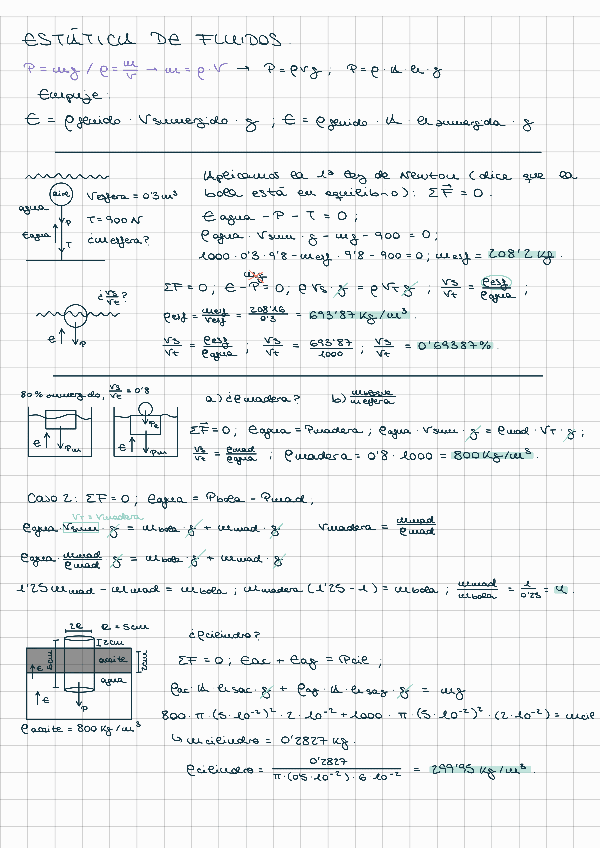 ESTÁTICA DE FLUIDOS.
P = mg / ρ = m/V → m = ρ · V → P = ρVg ; P = ρ · A · h · g
Empuje:
E = ρfluido · Vsumergido · g ; E = ρfluido · A · hsumergida · g
aire
agua
Eagua
P
T
Vesfera = 0'3 m³
T = 900 N
¿mesfera?
Aplicamos la 1ª ley de Newton (dice que la
bola está en equilibrio): ΣF = 0.
Eagua - P - T = 0 ;
ρagua · Vsum · g - mg - 900 = 0 ;
1000 · 0'3 · 9'8 - mesf · 9'8 - 900 = 0 ; mesf = 208'2 kg.
¿Vs/Vt?
E
P
mg
ΣF = 0 ; E - P = 0 ; ρ Vs · g = ρ Vt g ; Vs/Vt = ρesf/ρagua ;
ρesf = mesf/Vesf = 208'16/0'3 = 693'87 kg/m³.
Vs/Vt = ρesf/ρagua ; Vs/Vt = 693'87/1000 ; Vs/Vt = 0'69387%.
80% sumergido, Vs/Vt = 0'8
E
Pm
E
Pm
a) ¿ρmadera?
b)
ΣF = 0 ; Eagua = Pmadera ; ρagua · Vsum · g = ρmad · VT · g ;
Vs/Vt = ρmad/ρagua ; ρmadera = 0'8 · 1000 = 800 kg/m³.
Caso 2: ΣF = 0 ; Eagua = Pbola - Pmad,
VT = Vmadera
ρagua · Vsum · g = mbola · g + mmad · g
Vmadera = mmad/ρmad
ρagua · mmad/ρmad · g = mbola · g + mmad · g
1'25 mmad - mmad = mbola ; mmadera (1'25 - 1) = mbola ; mmad/mbola = 1/0'25 = 4.
2R
R = 5cm
2cm
6cm
aceite
2cm
agua
E
E
P
ρaceite = 800 kg/m³
¿ρcilindro?
ΣF = 0 ; Eac + Eag = Pcil ;
ρac · A · hsac · g + ρag · A · hsag · g = mg
800 · π · (5·10⁻²)² · 2·10⁻² + 1000 · π · (5·10⁻²)² · (2·10⁻²) = mcil
↳ mcilindro = 0'2827 kg.
ρcilindro = 0'2827 / π · (0'5·10⁻²) · 6·10⁻² = 299'95 kg/m³.